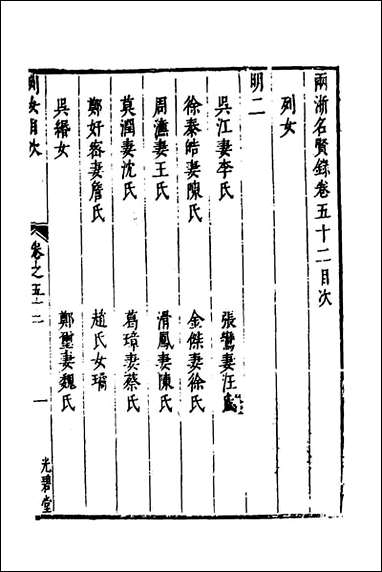 兩浙名賢錄卷五十二目次
列女
明二
吳江妻李氏
張鸞妻汪氏
徐泰皓妻陳氏
金傑妻徐氏
周瀛妻王氏
滑鳳妻陳氏
莫潤妻沈氏
葛璋妻蔡氏
鄭好容妻詹氏
趙氏女璚
吳緡女
鄭璽妻魏氏
列女目次
卷之五十二
一
光碧堂